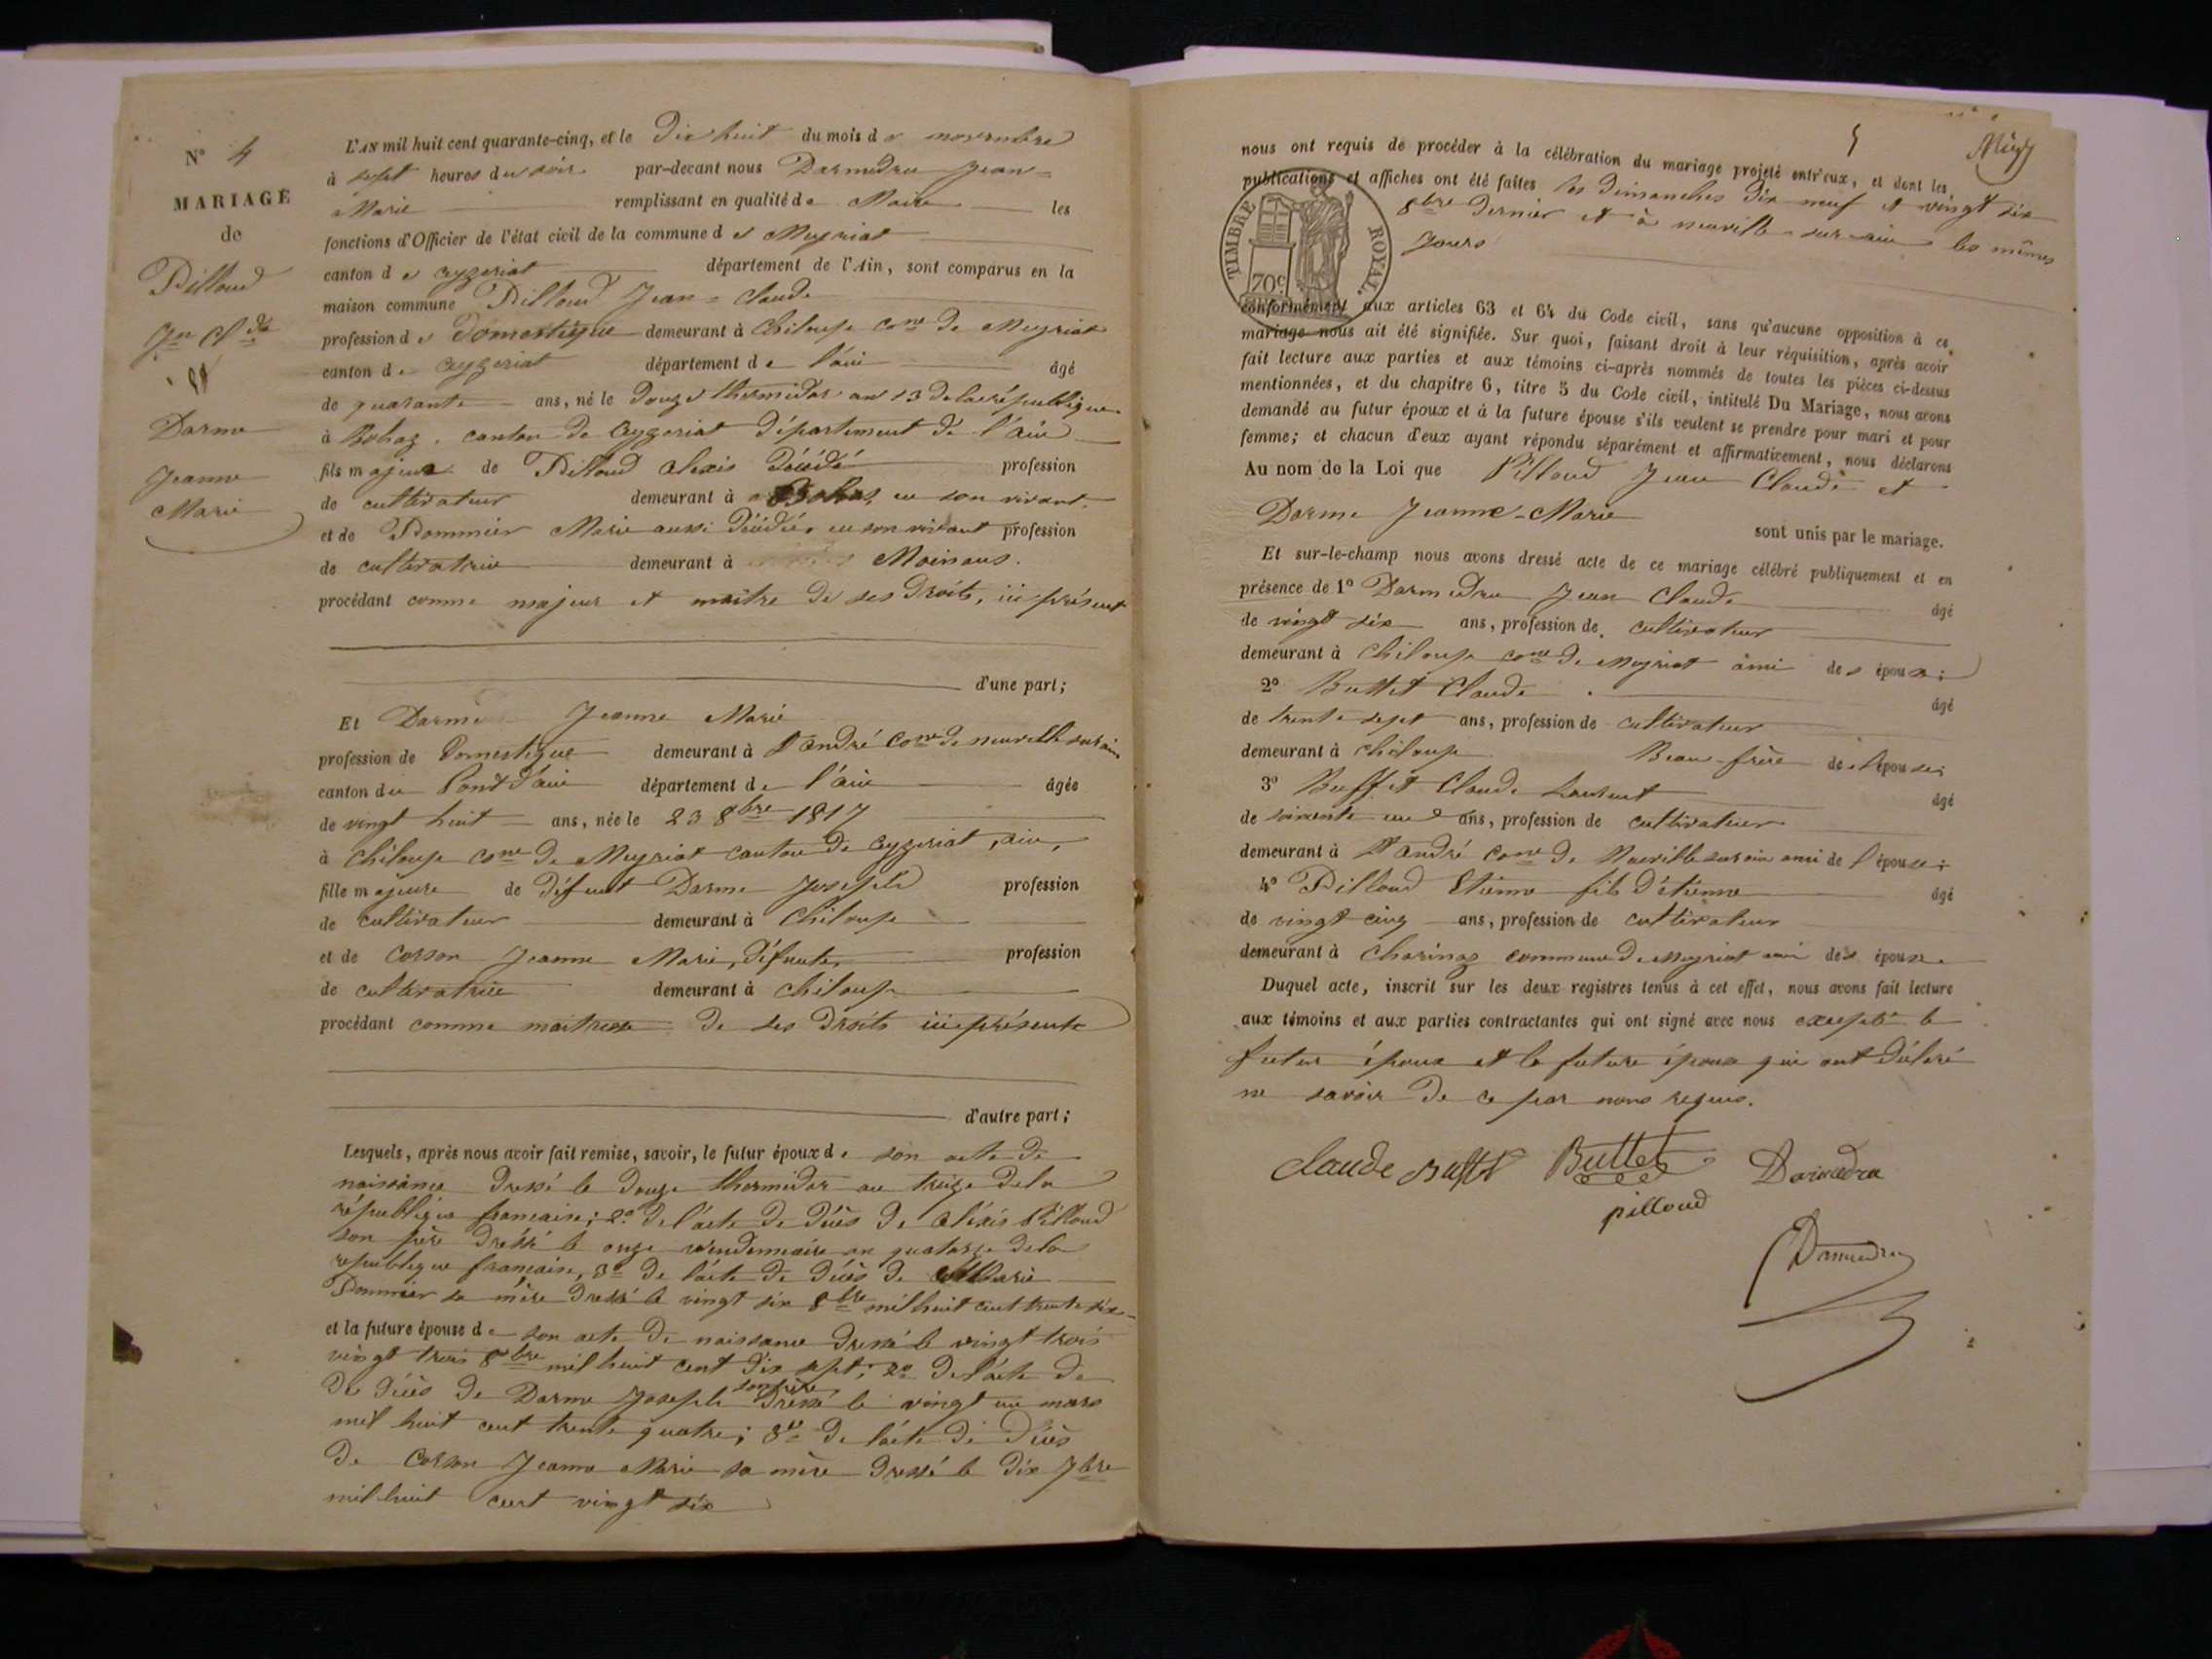 N° 4
MARIAGE
de
Pilloud
Jn Cl de
et
Darme
Jeanne
Marie
L'AN mil huit cent quarante-cinq, et le Dix huit du mois de novembre
à sept heures du soir par-devant nous Darmedru Jean=
Marie remplissant en qualité de Maire les
fonctions d'Officier de l'état civil de la commune de Meyriat
canton de Ceyzeriat département de l'Ain, sont comparus en la
maison commune Pilloud Jean=Claude
profession de Domestique demeurant à Chiloup cone de Meyriat
canton de Ceyzeriat département de l'ain âgé
de quarante ans, né le Douze thermidor an 13 de la république
à Bohaz, canton de Ceyzeriat Département de l'ain
fils majeur de Pilloud alexis Décédé profession
de cultivateur demeurant à Bohas, en son vivant,
et de Pommier Marie aussi Décédée, en son vivant profession
de cultivatrice demeurant à Moinans.
procédant comme majeur et maitre de ses Droits, ici présent
d'une part;
Et Darme Jeanne Marie
profession de Domestique demeurant à St andré Cone de neuville sur ain
canton du Pont d'ain département de l'ain âgée
de vingt huit ans, née le 23 8bre 1817
à Chiloup cone de Meyriat canton de Ceyzeriat, ain,
fille majeure de défunt Darme Joseph profession
de cultivateur demeurant à Chiloup
et de Corson Jeanne Marie, défunte, profession
de cultivatrice demeurant à Chiloup
procédant comme maitresse de ses droits ici présente
d'autre part;
Lesquels, après nous avoir fait remise, savoir, le futur époux de son acte de
naissance Dressé le Douze thermidor an treize de la
républiqu francaise; 2° de l'acte de décès de aléxis Pilloud
son père dressé le onze vendemiaire an quatorze de la
republique francaise, 3° de l'acte de décès de Marie
Pommier sa mère dressé le vingt six 8bre mil huit cent trente six
et la future épouse de son acte de naissance dressé le vingt trois
vingt trois 8bre mil huit cent dix sept; 2° de l'acte de
de décès de Darme Joseph son père dressé le vingt un mars
mil huit cent trente quatre; 3° de l'acte de décès
de Corson Jeanne Marie sa mère dressé le dix 7bre
mil huit cent vingt six
5
nous ont requis de procéder à la célébration du mariage projeté entr'eux, et dont les
publications et affiches ont été faites les dimanches dix neuf et vingt six
8bre dernier et à neuville sur ain les mêmes
jours
TIMBRE ROYAL.
70c
conformément aux articles 63 et 64 du Code civil, sans qu'aucune opposition à ce
mariage nous ait été signifiée. Sur quoi, faisant droit à leur réquisition, après avoir
fait lecture aux parties et aux témoins ci-après nommés de toutes les pièces ci-dessus
mentionnées, et du chapitre 6, titre 5 du Code civil, intitulé Du Mariage, nous avons
demandé au futur époux et à la future épouse s'ils veulent se prendre pour mari et pour
femme; et chacun d'eux ayant répondu séparément et affirmativement, nous déclarons
Au nom de la Loi que Pilloud Jean Claude et
Darme Jeanne-Marie
sont unis par le mariage.
Et sur-le-champ nous avons dressé acte de ce mariage célébré publiquement et en
présence de 1° Darmedru Jean Claude âgé
de vingt six ans, profession de cultivateur
demeurant à Chiloup cone de Meyriat ami des époux;
2° Buttet Claude âgé
de trente sept ans, profession de cultivateur
demeurant à Chiloup Beau-frère de l'épouse;
3° Buffet Claude Laurent âgé
de soixante un ans, profession de cultivateur
demeurant à St andré cone de Neuville sur ain ami de l'épouse;
4° Pilloud Etienne fils d'étienne âgé
de vingt cinq ans, profession de cultivateur
demeurant à Charinaz commune de Meyriat ami des époux.
Duquel acte, inscrit sur les deux registres tenus à cet effet, nous avons fait lecture
aux témoins et aux parties contractantes qui ont signé avec nous excepté le
futur époux et la future épouse qui ont déclaré
ne savoir de ce par nous requis.
Claude Buffet Buttet Darmedru
pilloud
Darmedru